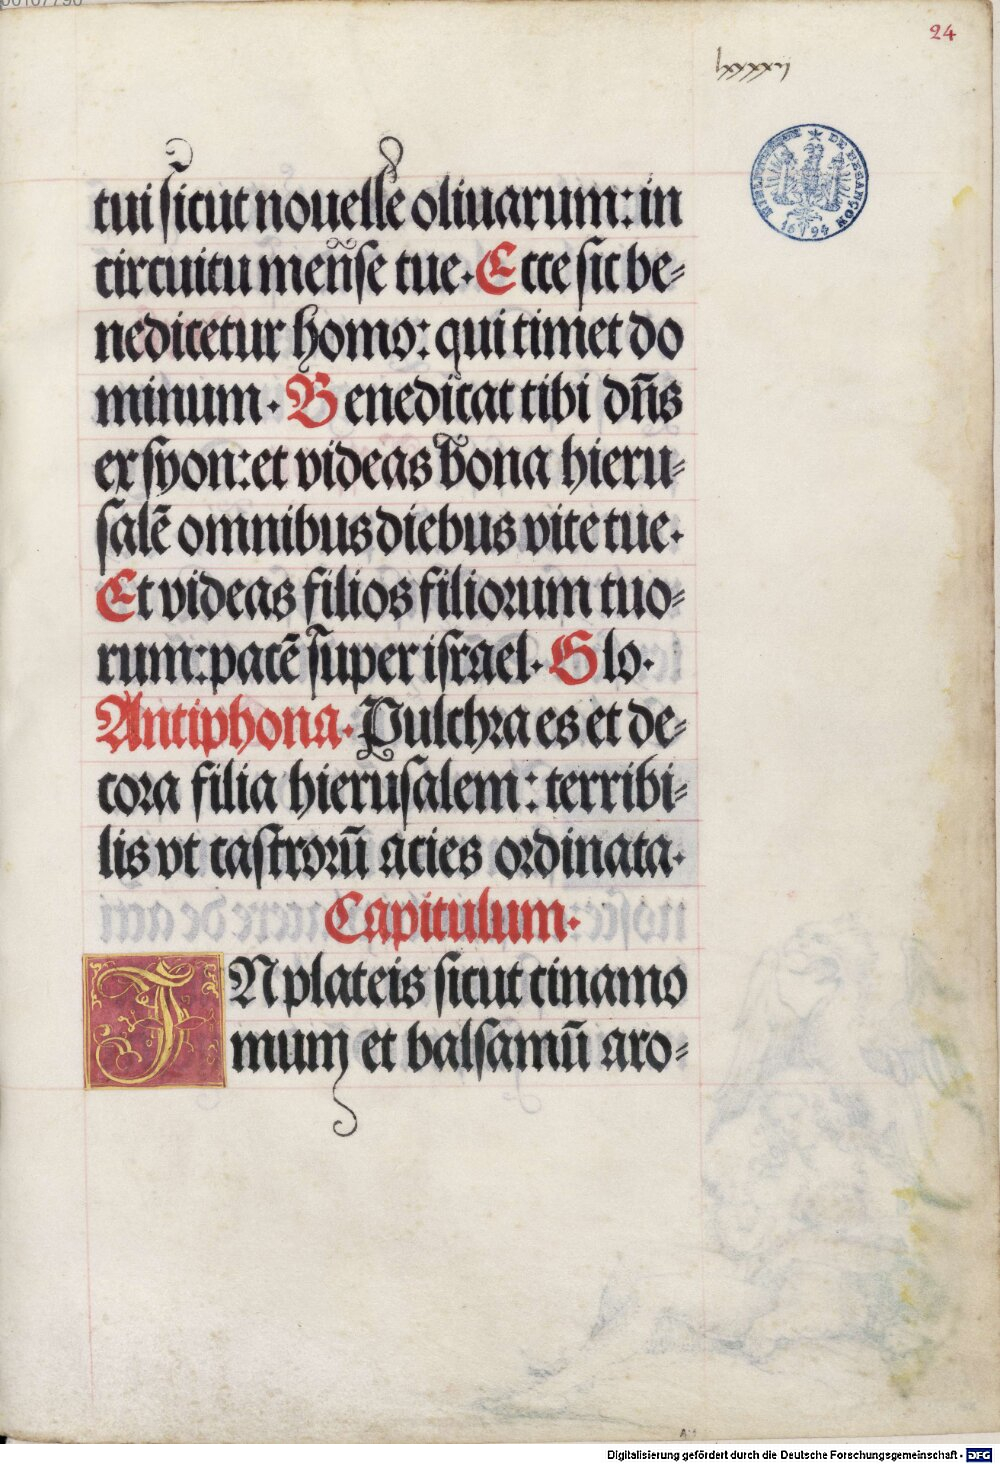 24
lxxxxii
tui sicut nouelle oliuarum: in
circuitu men̄se tue. Ecce sic be=
nedicetur homo: qui timet do
minum. Benedicat tibi dn̄s
ex syon: et videas bona hieru=
salē omnibus diebus vite tue.
Et videas filios filiorum tuo=
rum: pacē super israel. Glo.
Antiphona. Pulchra es et de=
cora filia hierusalem: terribi=
lis vt castrorū acies ordinata.
Capitulum.
IN plateis sicut cinamo
mum et balsamū aro=
BIBLIOTHEQUE DE BESANÇON
1694
Digitalisierung gefördert durch die Deutsche Forschungsgemeinschaft - DFG